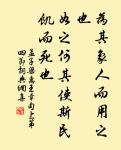 為其象人而用之
也
如之何其使斯民
飢而死也
孟子梁惠王章句上第
四節詞典佣集